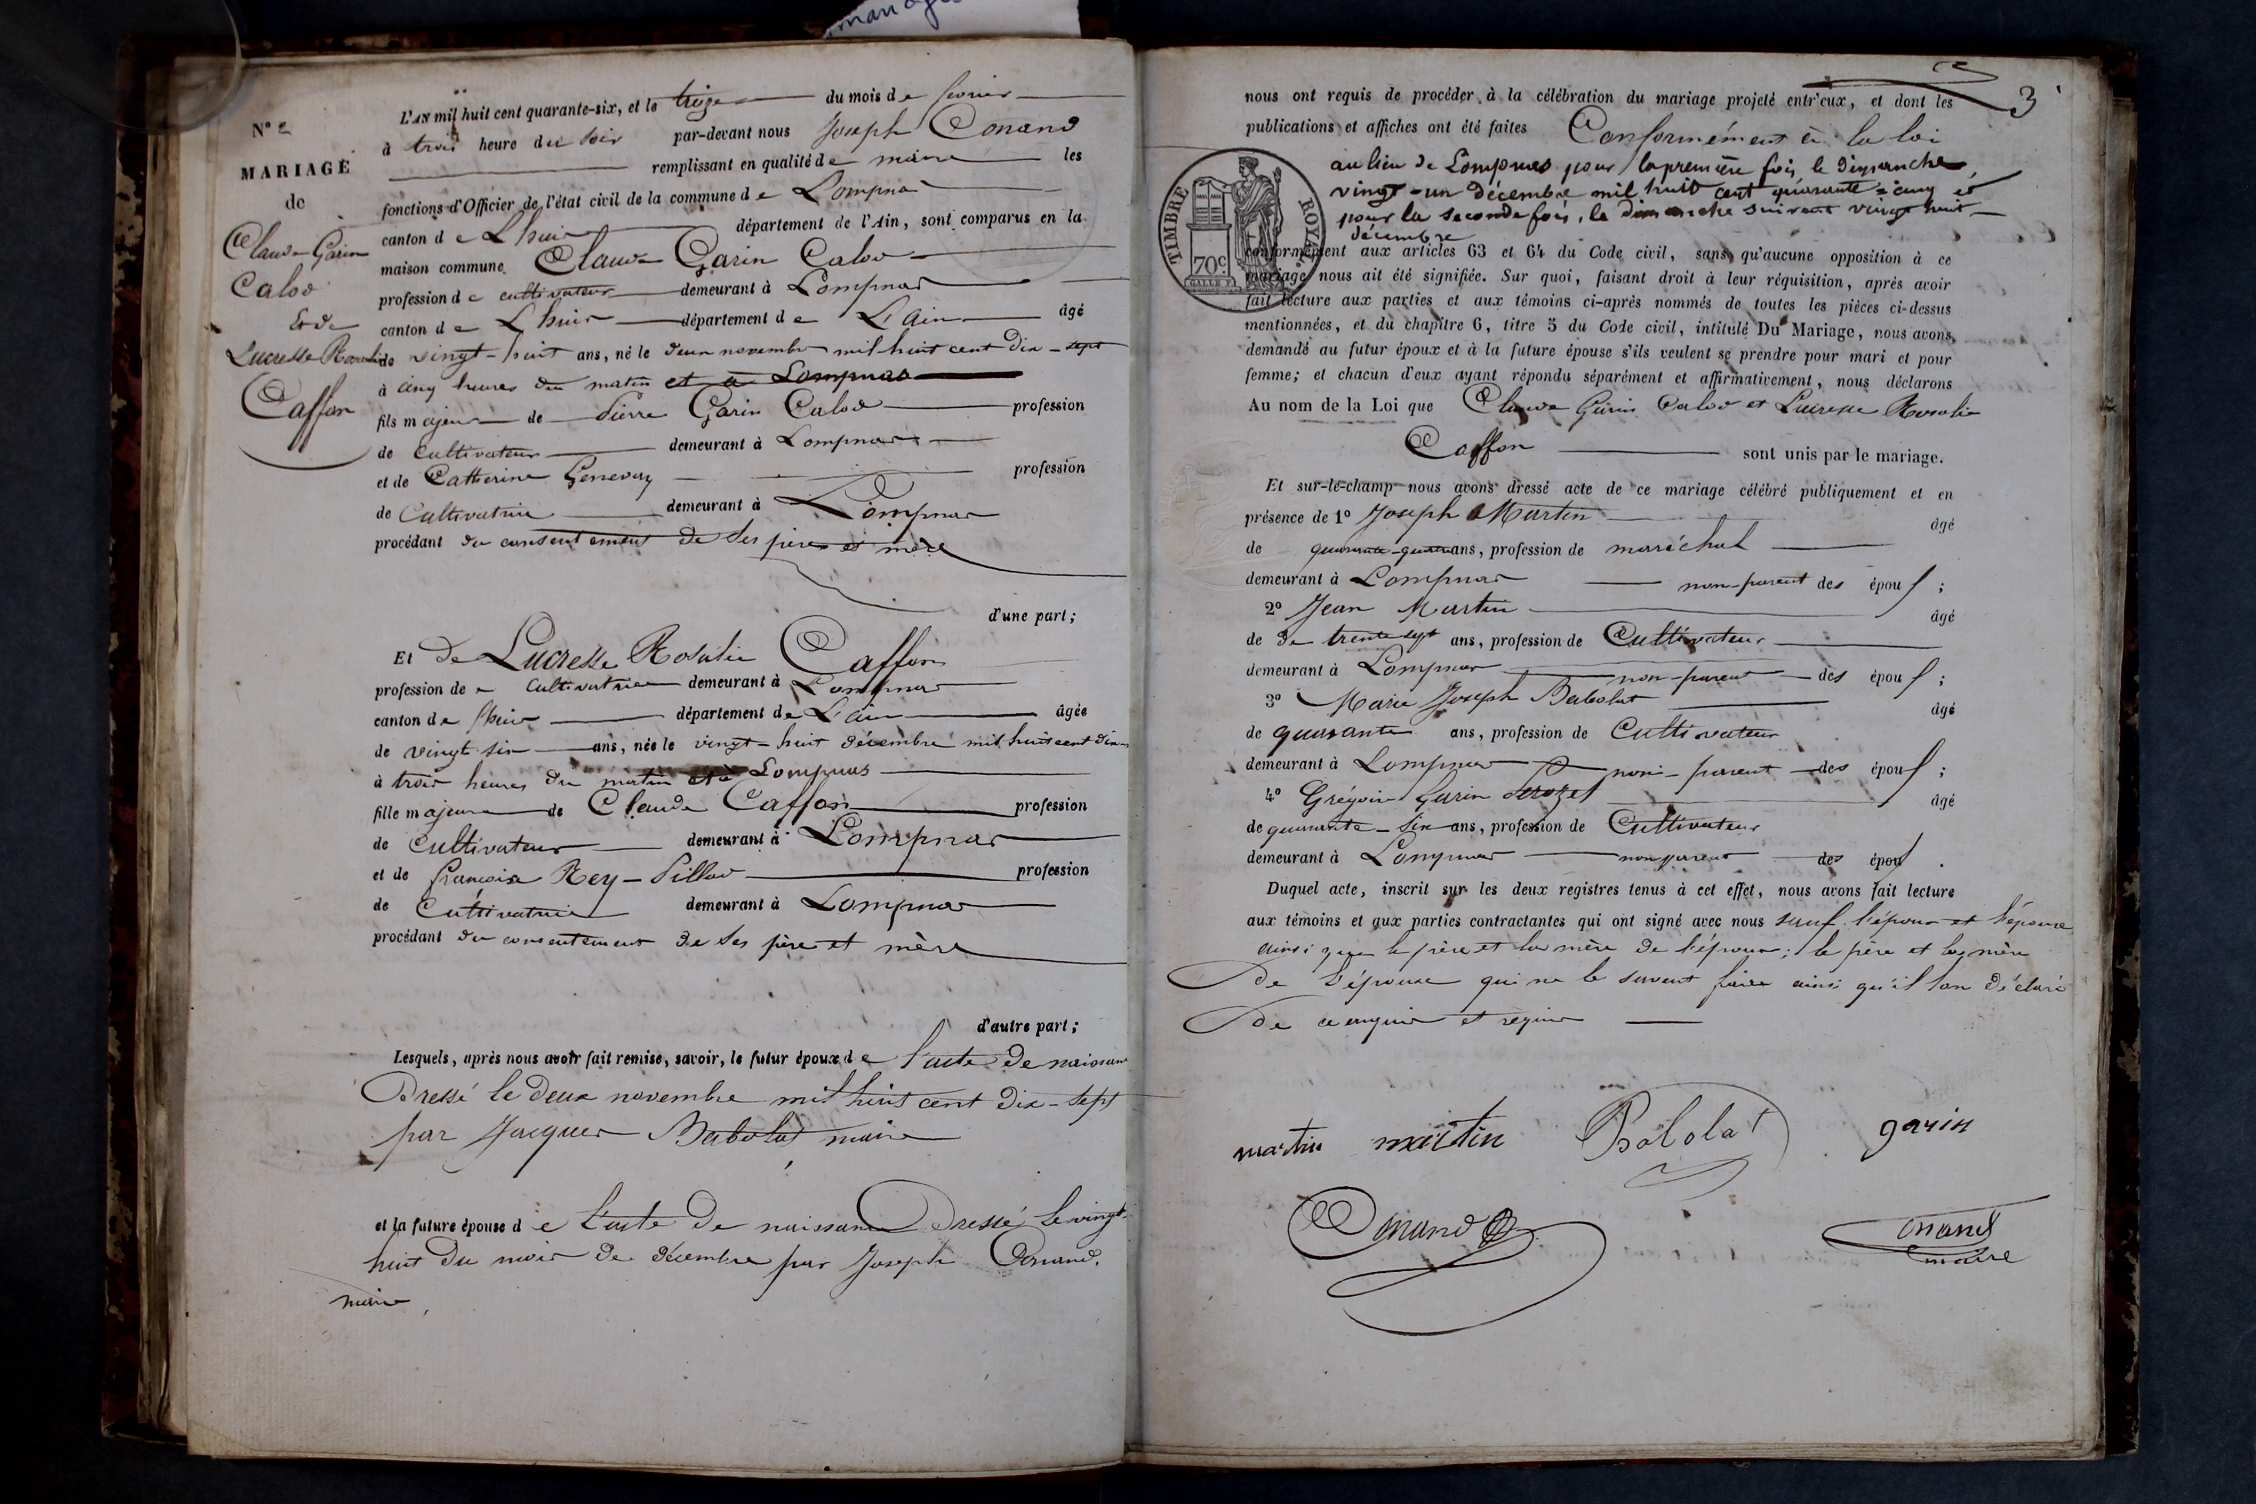 mariages
N° 2
MARIAGE
de
Claude Garin
Calod
Et de
Lucresse Rosalie
Caffon
L'AN mil huit cent quarante-six, et le treize du mois de février
à trois heure du soir par-devant nous Joseph Conand
remplissant en qualité de maire les
fonctions d'Officier de l'état civil de la commune de Lompnas
canton de Lhuis département de l'Ain, sont comparus en la
maison commune Claude Garin Calod
profession de cultivateur demeurant à Lompnas
canton de Lhuis département de L'Ain âgé
de vingt-huit ans, né le deux novembre mil huit cent dix-sept
à cinq heures du matin et à Lompnas
fils majeur de Pierre Garin Calod profession
de Cultivateur demeurant à Lompnas
et de Catherine Genevay profession
de Cultivatrice demeurant à Lompnas
procédant du consentement de ses père et mère
d'une part;
Et de Lucresse Rosalie Caffon
profession de cultivatrice demeurant à Lompnas
canton de Lhuis département de L'ain âgée
de vingt six ans, née le vingt-huit décembre mil huit cent dix
à trois heures du matin et à Lompnas
fille majeure de Claude Caffon profession
de Cultivateur demeurant à Lompnas
et de françoise Rey-Pillod profession
de Cultivatrice demeurant à Lompnas
procédant du consentement de ses père et mère
d'autre part;
Lesquels, après nous avoir fait remise, savoir, le futur époux de l'acte de naissance
Dressé le deux novembre mil huit cent dix-sept
par Jacques Babolat maire
et la future épouse de l'acte de naissance Dressé le vingt
huit du mois de décembre par Joseph Conand.
maire
3
nous ont requis de procéder à la célébration du mariage projeté entr'eux, et dont les
publications et affiches ont été faites Conformément à la loi
au lieu de Lompnas pour la première fois le dimanche
vingt-un décembre mil huit cent quarante-cinq et
pour la seconde fois, le dimanche suivant vingt huit
décembre
TIMBRE ROYAL
70c
conformément aux articles 63 et 64 du Code civil, sans qu'aucune opposition à ce
mariage nous ait été signifiée. Sur quoi, faisant droit à leur réquisition, après avoir
fait lecture aux parties et aux témoins ci-après nommés de toutes les pièces ci-dessus
mentionnées, et du chapitre 6, titre 5 du Code civil, intitulé Du Mariage, nous avons
demandé au futur époux et à la future épouse s'ils veulent se prendre pour mari et pour
femme; et chacun d'eux ayant répondu séparément et affirmativement, nous déclarons
Au nom de la Loi que Claude Garin Calod et Lucresse Rosalie
Caffon sont unis par le mariage.
Et sur-le-champ nous avons dressé acte de ce mariage célébré publiquement et en
présence de 1° Joseph Martin âgé
de quarante-quatre ans, profession de maréchal
demeurant à Lompnas non-parent des époux;
2° Jean Martin âgé
de de trente sept ans, profession de Cultivateur
demeurant à Lompnas non-parent des époux;
3° Marie Joseph Babolat âgé
de quarante ans, profession de Cultivateur
demeurant à Lompnas non-parent des époux;
4° Grégoire Garin âgé
de quarante-six ans, profession de Cultivateur
demeurant à Lompnas non parent des époux.
Duquel acte, inscrit sur les deux registres tenus à cet effet, nous avons fait lecture
aux témoins et aux parties contractantes qui ont signé avec nous sauf l'époux et l'épouse
ainsi que le père et la mère de l'époux; le père et la mère
De l'épouse qui ne le savent faire ainsi qu'il l'on déclaré
De ce enquis et requis
martin martin Babolat garin
Conand
Conand
maire